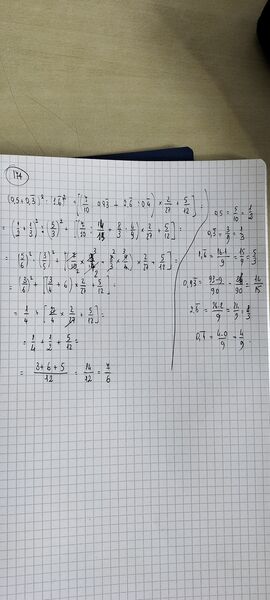 174
(0,5+0,3̅)² : 1,6̅² + [(7/10 : 0,93̅ + 2,6̅ : 0,4̅) × 2/27 + 5/12] =
= (1/2 + 1/3)² : (5/3)² + [(7/10 : 14/15 + 8/3 : 4/9) × 2/27 + 5/12] =
= (5/6)² · (3/5)² + [( × ) × 2/27 + 5/12] =
= (3/6)² + [(3/4 + 6) × 2/27 + 5/12] =
= 1/4 + [27/4 × 2/27 + 5/12] =
= 1/4 + 1/2 + 5/12 =
= (3+6+5)/12 = 14/12 = 7/6
0,5 = 5/10 = 1/2
0,3̅ = 3/9 = 1/3
1,6̅ = (16-1)/9 = 15/9 = 5/3
0,93̅ = (93-9)/90 = 84/90 = 14/15
2,6̅ = (26-2)/9 = 24/9 = 8/3
0,4̅ = (4-0)/9 = 4/9